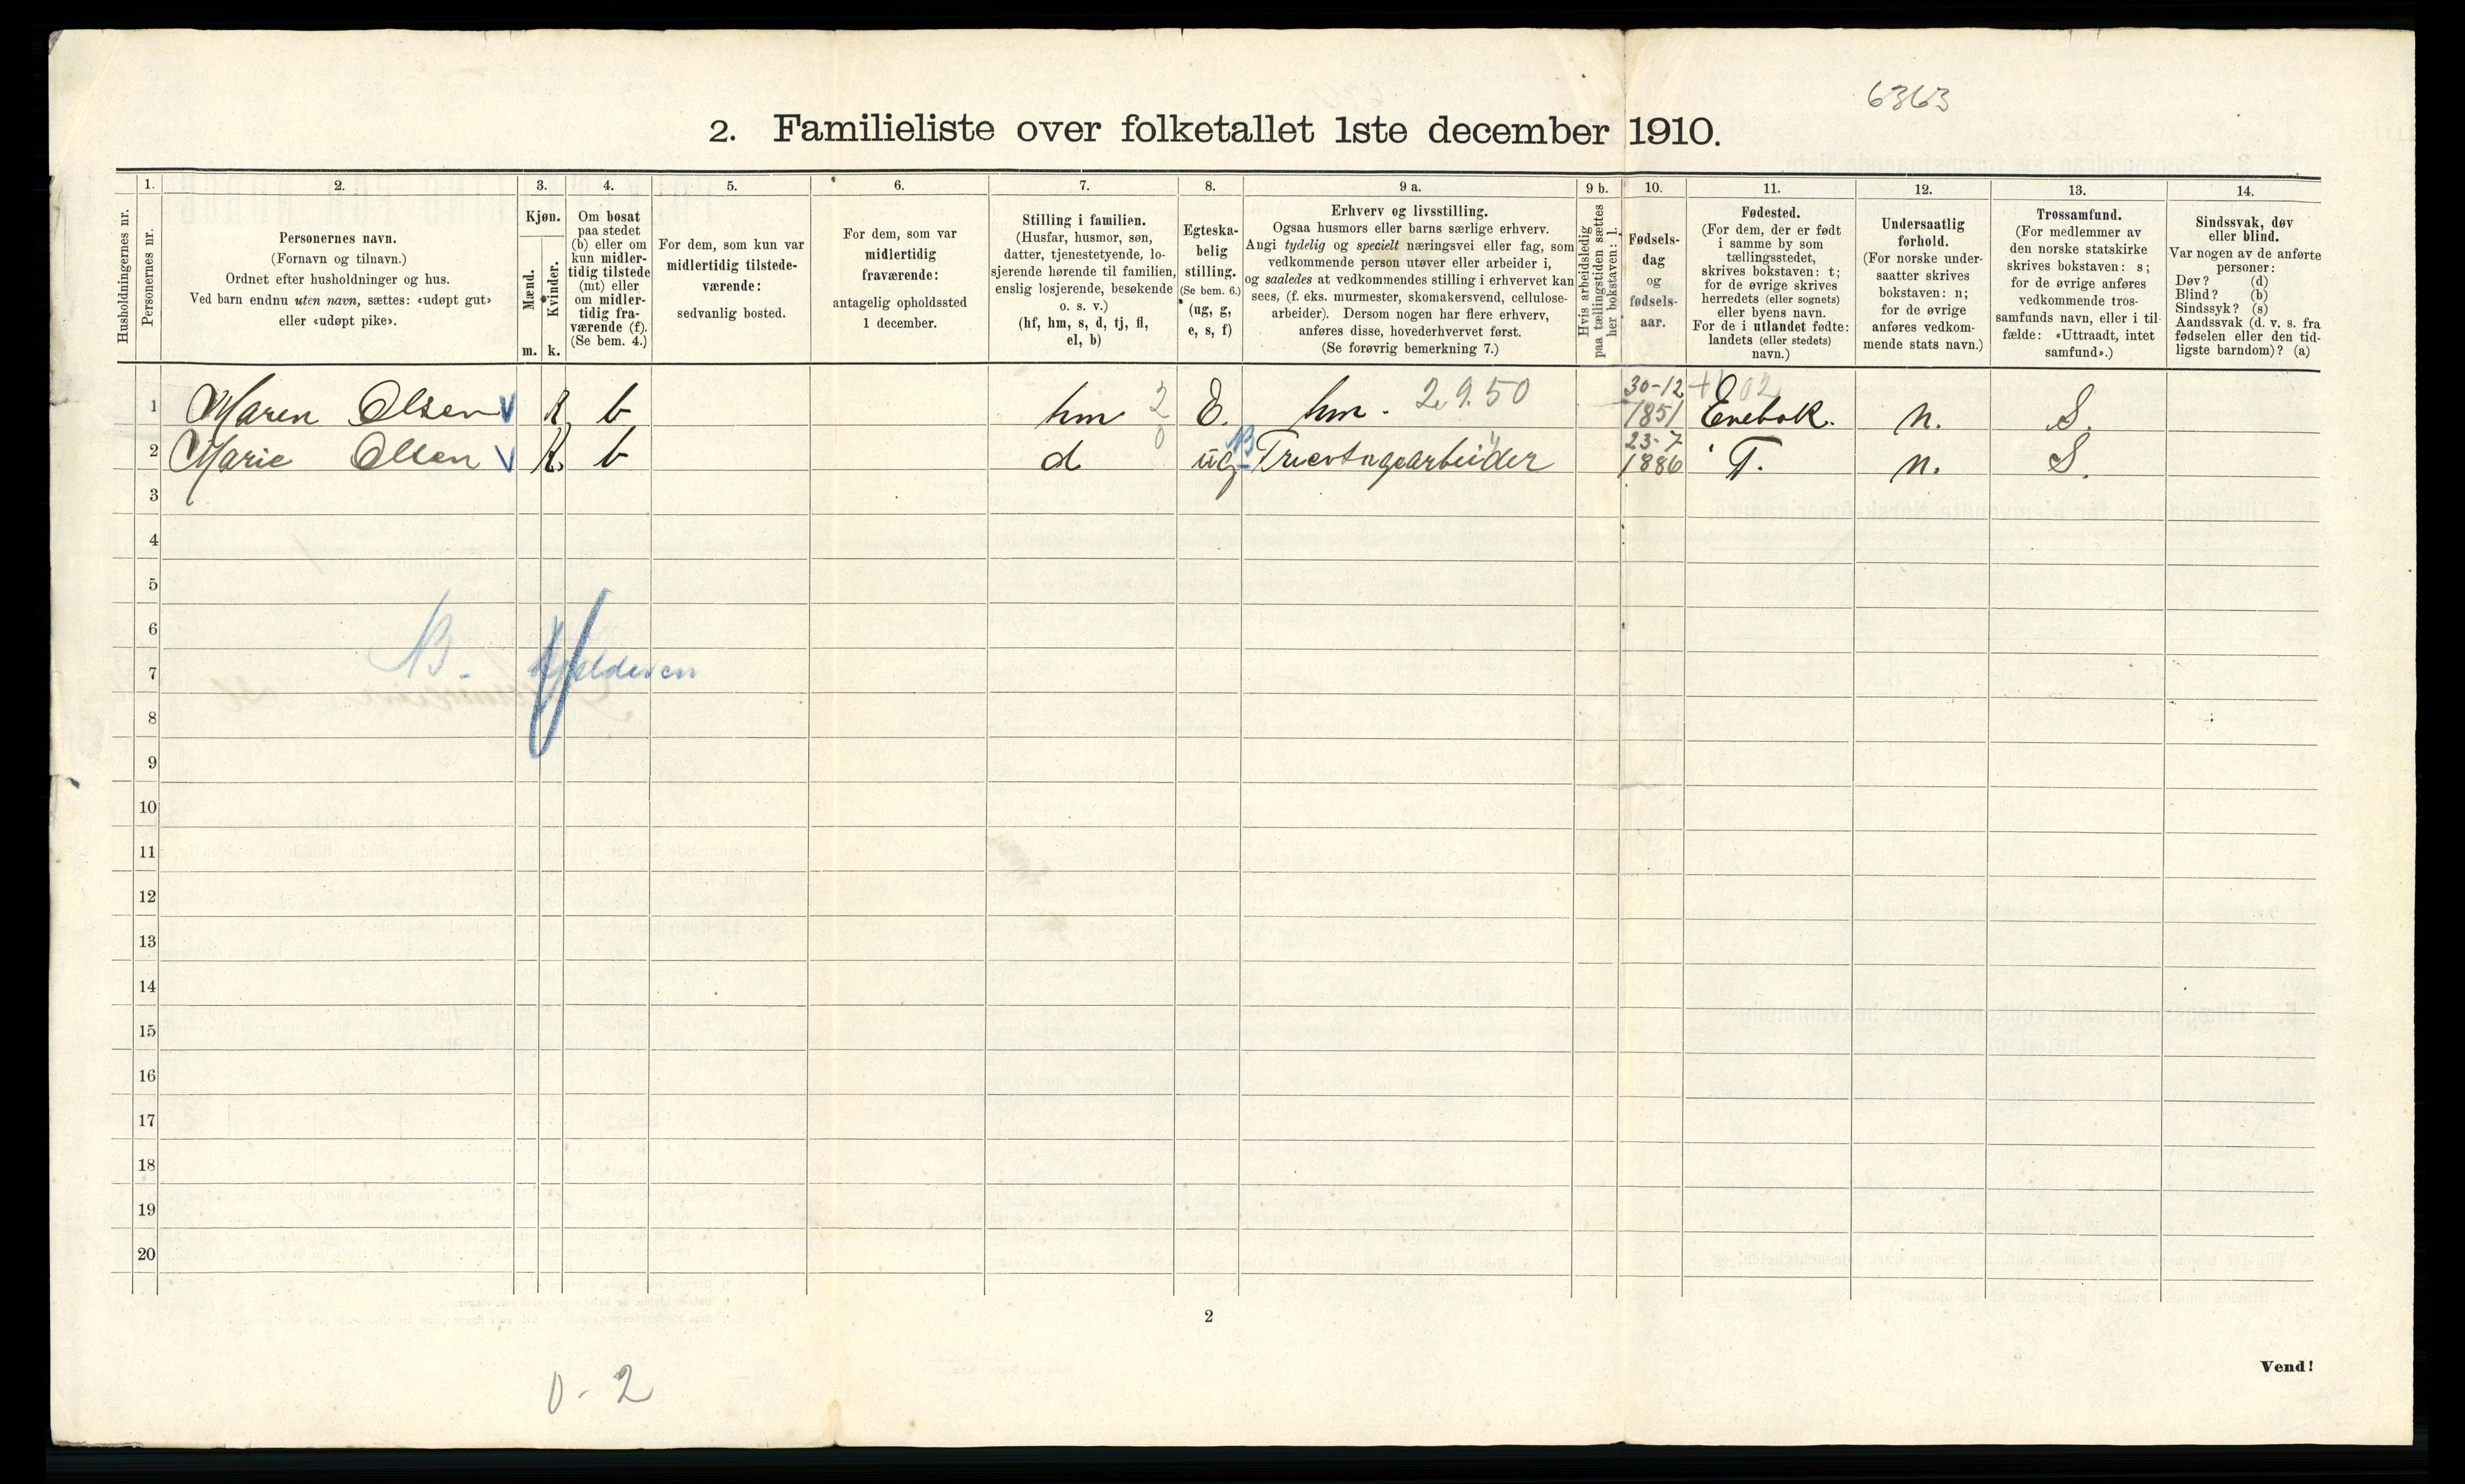 6363
2. Familieliste over folketallet 1ste december 1910.
1. 2. 3. 4. 5. 6. 7. 8. 9 a. 9 b. 10. 11. 12. 13. 14.
Husholdningernes nr.
Personernes nr.
Personernes navn.
(Fornavn og tilnavn.)
Ordnet efter husholdninger og hus.
Ved barn endnu uten navn, sættes: «udøpt gut»
eller «udøpt pike».
Kjøn.
Mænd.
Kvinder.
m. k.
Om bosat
paa stedet
(b) eller om
kun midler-
tidig tilstede
(mt) eller
om midler-
tidig fra-
værende (f).
(Se bem. 4.)
For dem, som kun var
midlertidig tilstede-
værende:
sedvanlig bosted.
For dem, som var
midlertidig
fraværende:
antagelig opholdssted
1 december.
Stilling i familien.
(Husfar, husmor, søn,
datter, tjenestetyende, lo-
sjerende hørende til familien,
enslig losjerende, besøkende
o. s. v.)
(hf, hm, s, d, tj, fl,
el, b)
Egteska-
belig
stilling.
(Se bem. 6.)
(ug, g,
e, s, f)
Erhverv og livsstilling.
Ogsaa husmors eller barns særlige erhverv.
Angi tydelig og specielt næringsvei eller fag, som
vedkommende person utøver eller arbeider i,
og saaledes at vedkommendes stilling i erhvervet kan
sees, (f. eks. murmester, skomakersvend, cellulose-
arbeider). Dersom nogen har flere erhverv,
anføres disse, hovederhvervet først.
(Se forøvrig bemerkning 7.)
Hvis arbeidsledig
paa tællingstiden sættes
her bokstaven: l.
Fødsels-
dag
og
fødsels-
aar.
Fødested.
(For dem, der er født
i samme by som
tællingsstedet,
skrives bokstaven: t;
for de øvrige skrives
herredets (eller sognets)
eller byens navn.
For de i utlandet fødte:
landets (eller stedets)
navn.)
Undersaatlig
forhold.
(For norske under-
saatter skrives
bokstaven: n;
for de øvrige
anføres vedkom-
mende stats navn.)
Trossamfund.
(For medlemmer av
den norske statskirke
skrives bokstaven: s;
for de øvrige anføres
vedkommende tros-
samfunds navn, eller i til-
fælde: «Uttraadt, intet
samfund».)
Sindssvak, døv
eller blind.
Var nogen av de anførte
personer:
Døv? (d)
Blind? (b)
Sindssyk? (s)
Aandssvak (d. v. s. fra
fødselen eller den tid-
ligste barndom)? (a)
1 Maren Olsen V K b hm 2 E. hm. 2.9.50 30-12 1851 02 Enebak. n. S.
2 Marie Olsen V K. b d 0 ug B 23-7 1886 T. n. S.
3
4
5
6
7
8
9
10
11
12
13
14
15
16
17
18
19
20
B.
2
Vend!
0-2